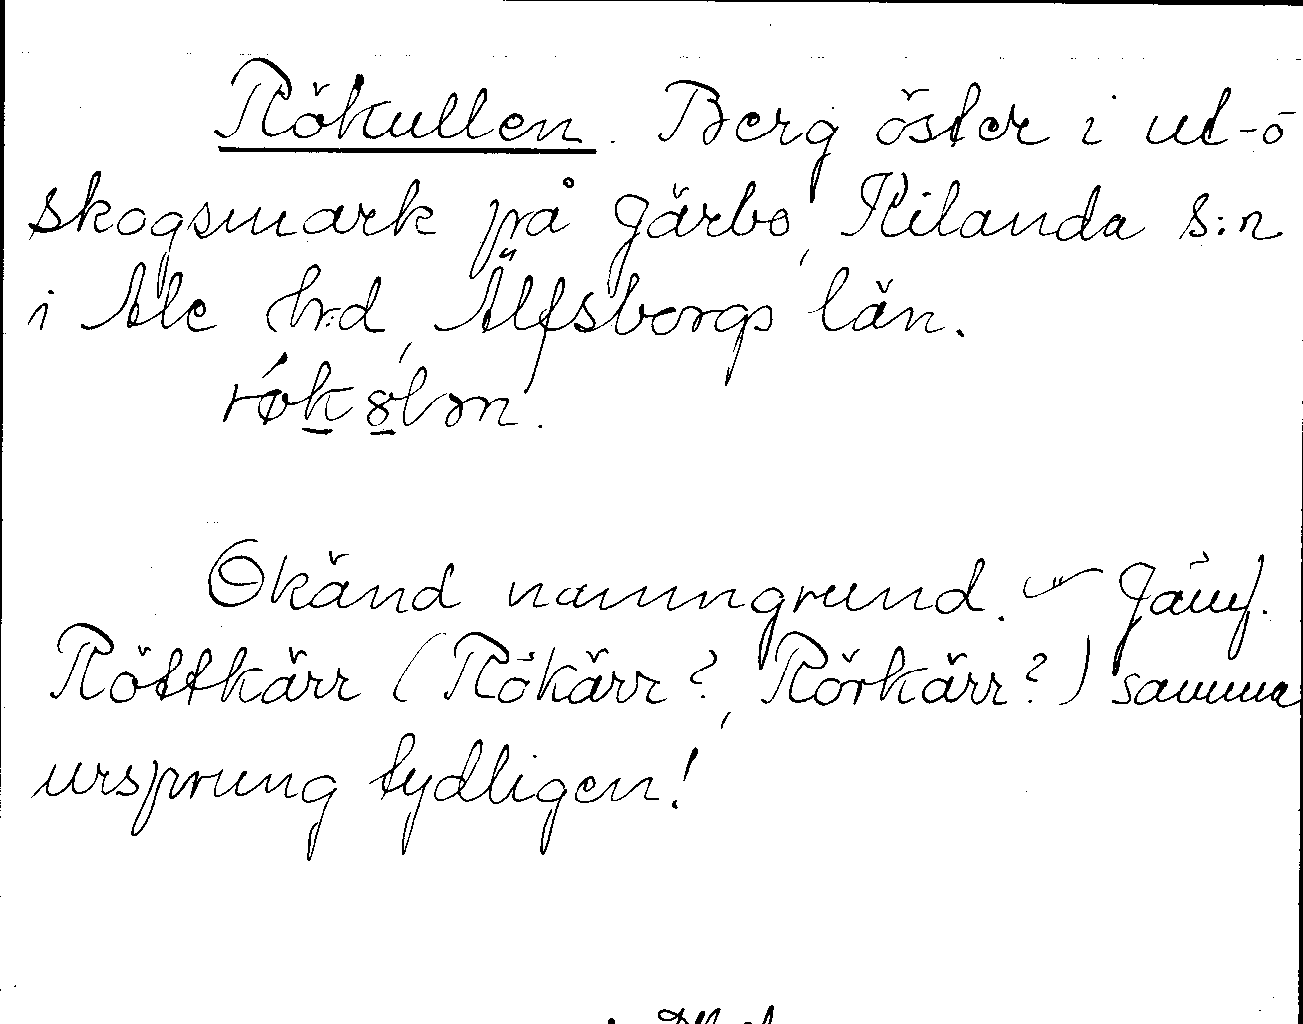 Rökullen. Berg öster i ut-o
skogsmark på Gärbo, Kilanda s:n
i Ale hrd, Älfsborgs län.
Okänd namngrund. Jämf.
Röttkärr (Rökärr?, Rörkärr?) samma
ursprung tydligen!